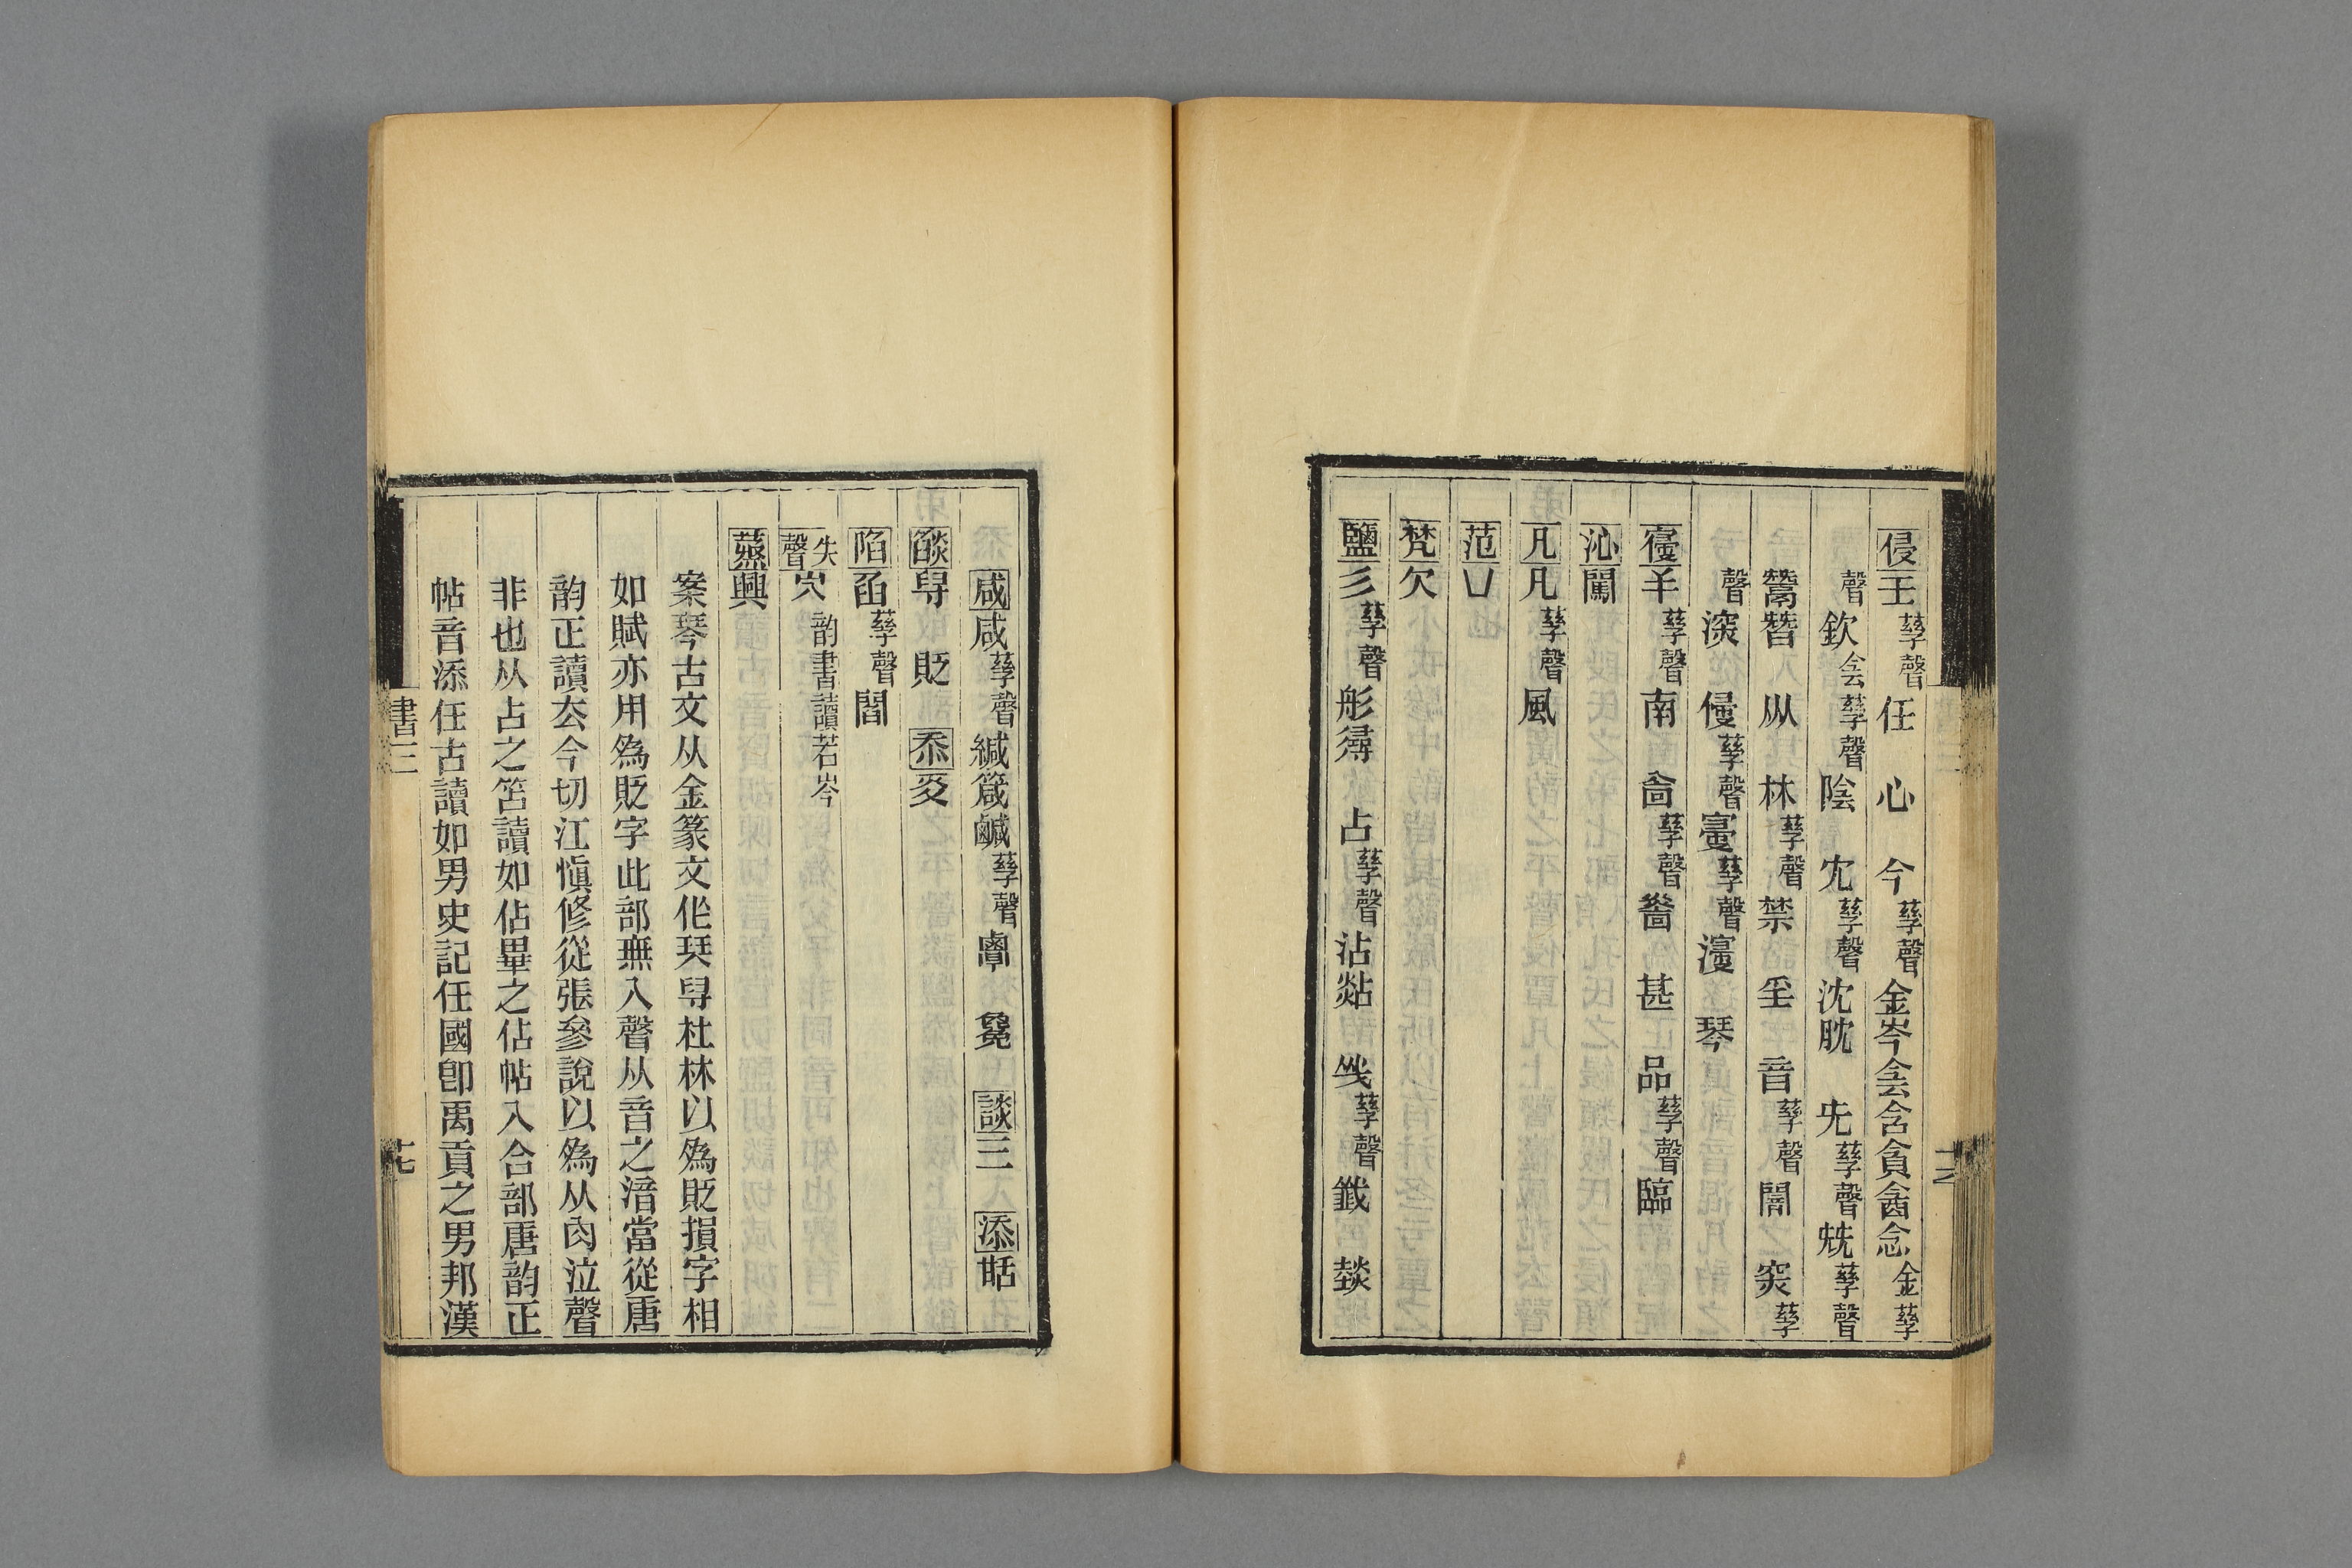 侵 𡈼 孳聲 任 心 今 孳聲 金岑侌含貪酓念 金孳
聲 欽 侌孳聲 陰 冘 孳聲 沈眈 兂 孳聲 兓 孳聲
鬵朁 㐺 林 孳聲 禁 㸒 音 孳聲 闇 突 孳
聲 深 㑴 孳聲 孳聲 琴
𢆉 孳聲 南 㐭 孳聲 啚 甚 品 孳聲 臨
沁 闖
凡 凡 孳聲 風
范 凵
梵 欠
鹽 彡 孳聲 彤尋 占 孳聲 沾㶣 孳聲 籤 燅
咸 咸 孳聲 緘箴鹹 孳聲 毚 談 三 添 甛
㷋 㝵 貶 忝 㕛
陷 臽 孳聲 閻
失聲 㝐 韵書讀若岑
蒸 興
案琴古文从金篆文作珡㝵杜林以為貶損字相
如賦亦用為貶字此部無入聲从音之湆當從唐
韵正讀去今切江愼修從張參說以為从肉泣聲
非也从占之笘讀如佔畢之佔帖入合部唐韵正
帖音添任古讀如男史記任國卽禹貢之男邦漢
書三